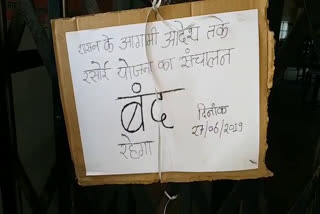 शासन के आगामी आदेश तक
रसोई योजना का संचालन
बंद
दिनांक
27/06/2019
रहेगा